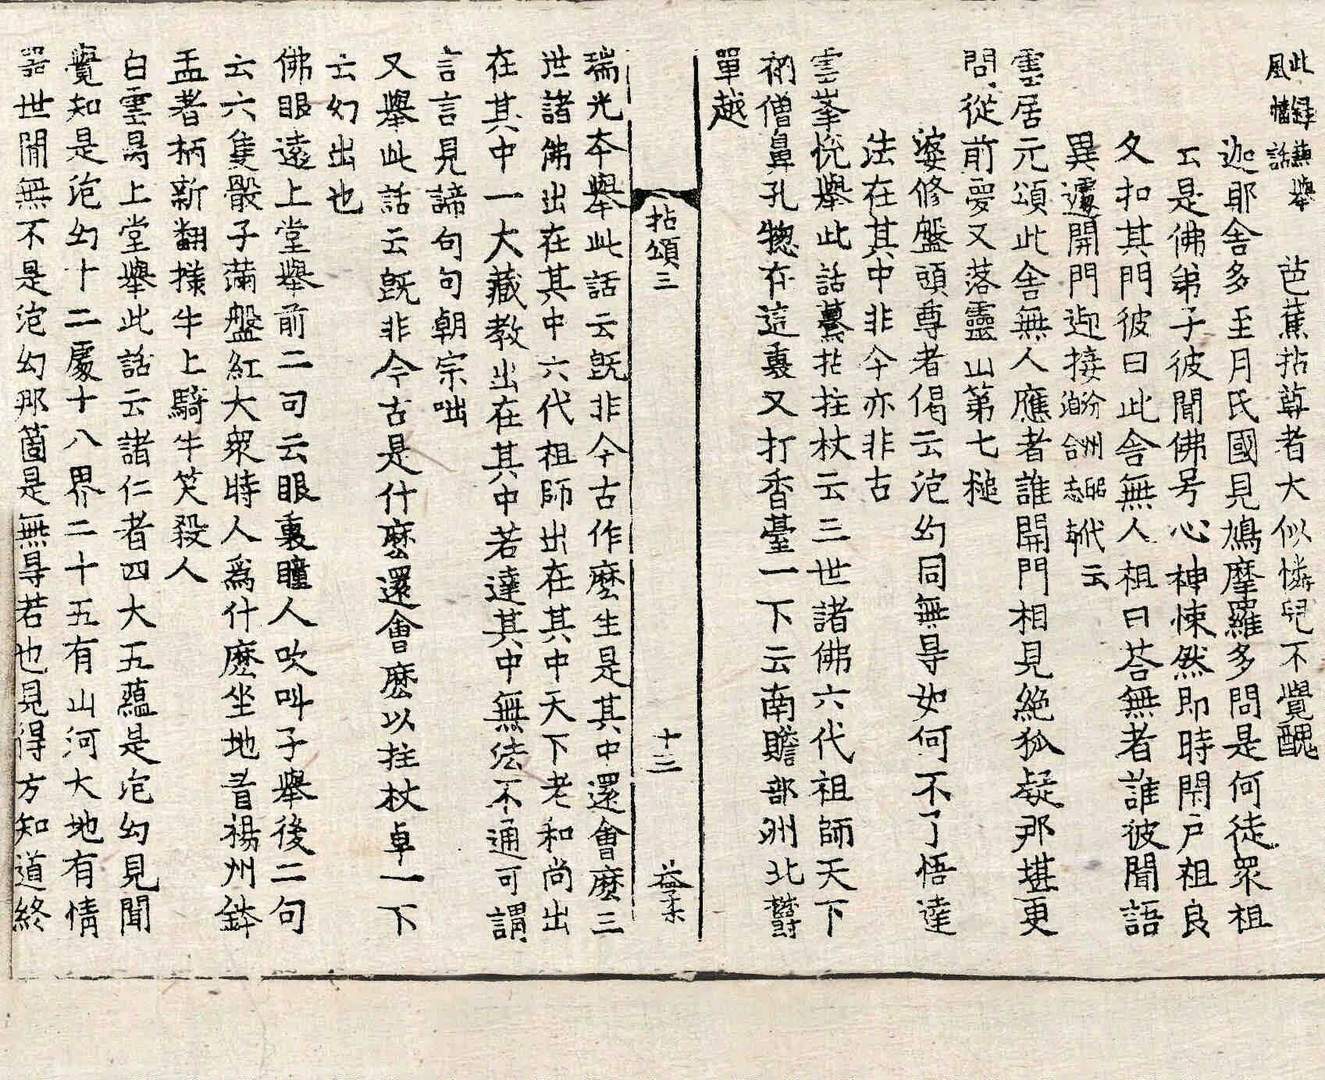 此録兼舉
風幡話
芭蕉拈尊者大似憐兒不覺醜
迦耶舍多至月氏國見鳩摩羅多問是何徒眾祖
云是佛弟子彼聞佛号心神悚然即時閇户祖良
久扣其門彼曰此舍無人祖曰荅無者誰彼聞語
異遽開門迎接汾州昭代云
雲居元頌此舍無人應者誰開門相見絶狐疑那堪更
問從前夢又落靈山第七槌
婆修盤頭尊者偈云泡幻同無㝵如何不了悟達
法在其中非今亦非古
雲峯恱舉此話驀拈拄杖云三世諸佛六代祖師天下
衲僧鼻孔惣在這裏又打香臺一下云南贍部洲北欝
單越
拈頌三
十三
瑞光夲舉此話云旣非今古作麽生是其中還會麽三
世諸佛出在其中六代祖師出在其中天下老和尚出
在其中一大藏教出在其中若達其中無法不通可謂
言言見諦句句朝宗咄
又舉此話云旣非今古是什麽還會麽以拄杖卓一下
云幻出也
佛眼遠上堂舉前二句云眼裏瞳人吹叫子舉後二句
云六隻骰子滿盤紅大衆時人爲什麽坐地看揚州鉢
盂著柄新翻樣牛上騎牛笑殺人
白雲昺上堂舉此話云諸仁者四大五蘊是泡幻見聞
覺知是泡幻十二處十八界二十五有山河大地有情
器世間無不是泡幻那箇是無㝵若也見得方知道終